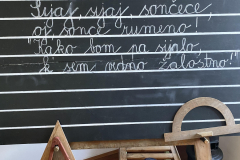 Sijaj, sijaj, sončece,
oj sonce rumeno!
"Kako bom pa sijalo,
k sem vedno žalostno!"